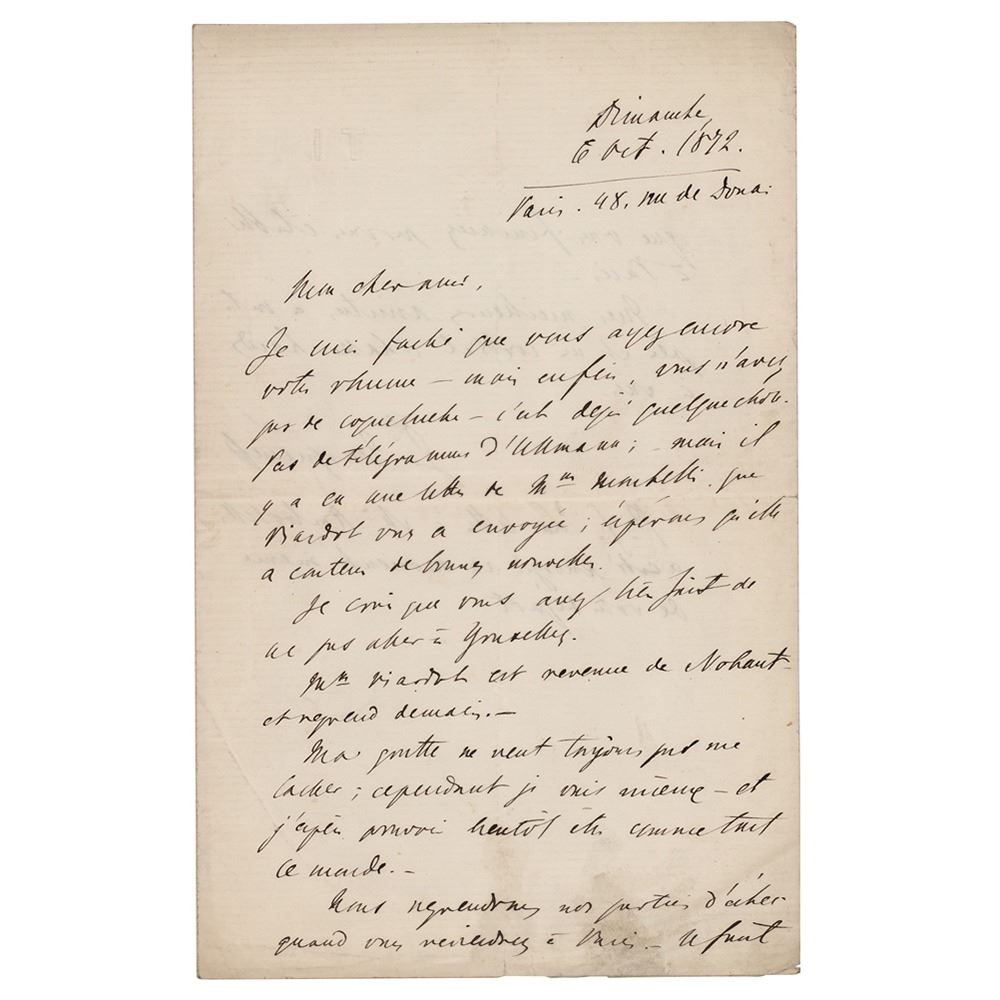 Dimanche,
6 Oct. 1872.
Paris. 48, rue de Douai
Mon cher ami,
Je suis fâché que vous ayez encore
votre rhume — mais enfin, vous n'avez
pas de coqueluche — c'est déjà quelque chose.
Pas de télégramme d'Ullmann; — mais il
y a eu une lettre de Mme Mombelli, que
Viardot vous a envoyée; espérons qu'elle
a contenu de bonnes nouvelles.
Je crois que vous avez bien fait de
ne pas aller à Bruxelles.
Mme Viardot est revenue de Nohant
et reprend demain. —
Ma goutte ne veut toujours pas me
lâcher; cependant je vais mieux — et
j'espère pouvoir bientôt être comme tout
le monde. —
Nous reprendrons nos parties d'échec
quand vous reviendrez à Paris. — Il faut